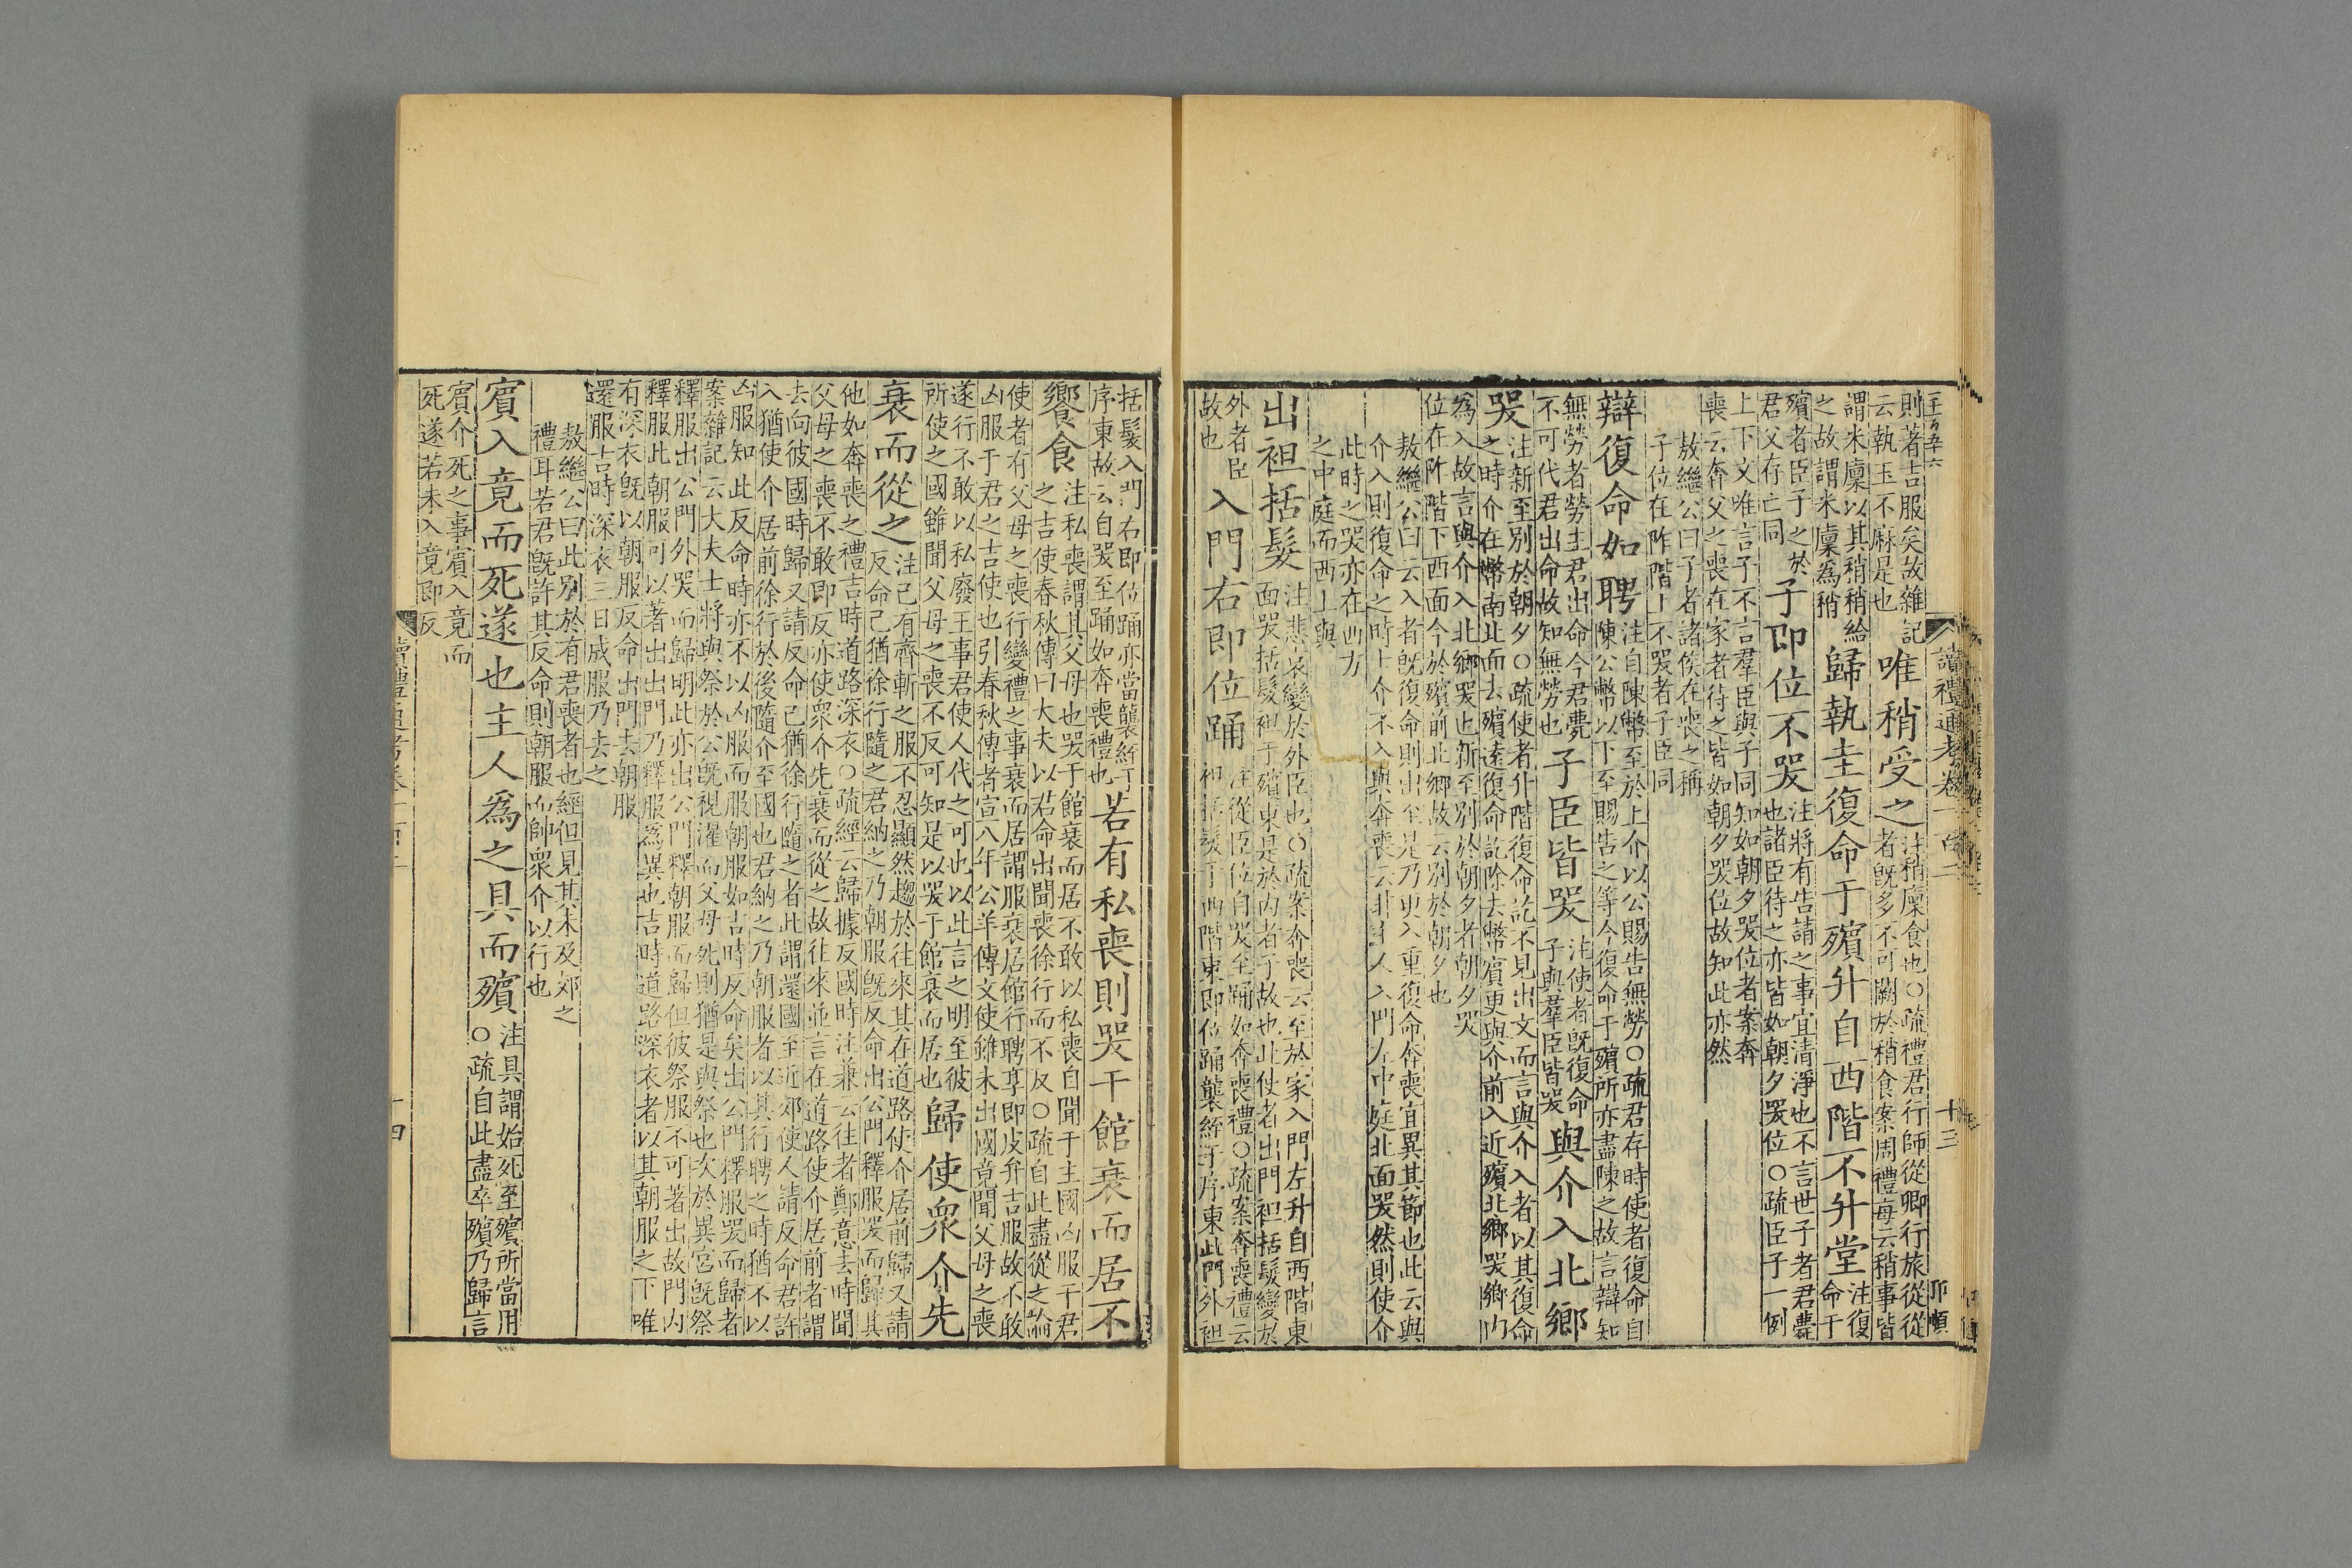 王万五十六
讀禮通考卷一百二
十三
則著吉服矣故雜記
云執玉不麻是也
唯稍受之
注稍廩食也○疏禮君行師從卿行旅從從
者旣多不可闕於稍食案周禮每云稍事皆
謂米廩以其稍稍給
之故謂米廩爲稍
歸執圭復命于殯升自西階不升堂
注復
命于
殯者臣子之於
君父存亡同
子即位不哭
注將有告請之事宜清淨也不言世子者君薨
也諸臣待之亦皆如朝夕哭位○疏臣子一例
上下文唯言子不言羣臣與子同知如朝夕哭位者案奔
喪云奔父之喪在家者待之皆如朝夕哭位故知此亦然
敖繼公曰子者諸侯在喪之稱
子位在阼階上不哭者子臣同
辯復命如聘
注自陳幣至於上介以公賜告無勞○疏君存時使者復命自
陳公幣以下至賜告之等今復命于殯所亦盡陳之故言辯知
無勞者勞主君出命今君薨
不可代君出命故知無勞也
子臣皆哭
注使者旣復命
子與羣臣皆哭
與介入北鄉
哭
注新至別於朝夕○疏使者升階復命訖不見出文而言與介入者以其復命
之時介在幣南北面去殯遠復命訖除去幣賓更與介前入近殯北鄉哭鄉內
爲入故言與介入北鄉哭也新至別於朝夕者朝夕哭
位在阼階下西面今於殯前北鄉故云別於朝夕也
敖繼公曰云入者旣復命則出至是乃更入重復命奔喪宜異其節也此云與
介入則復命之時上介不入與奔喪云非主人入門左中庭北面哭然則使介
此時之哭亦在西方
之中庭而西上與
出袒括髮
注悲哀變於外臣也○疏案奔喪云至於家入門左升自西階東
面哭括髮袒于殯東是於內者子故也此使者出門袒括髮變於
外者臣
故也
入門右即位踊
注從臣位自哭至踊如奔喪禮○疏案奔喪禮云
袒括髮于西階東即位踊襲絰于序東此門外袒
括髮入門右即位踊亦當襲絰于
序東故云自哭至踊如奔喪禮也
若有私喪則哭于館衰而居不
饗食
注私喪謂其父母也哭于館衰而居不敢以私喪自聞于主國凶服于君
之吉使春秋傳曰大夫以君命出聞喪徐行而不反○疏自此盡從之論
使者有父母之喪行變禮之事衰而居謂服衰居館行聘享即皮弁吉服故不敢
凶服于君之吉使也引春秋傳者宣八年公羊傳文使雖未出國竟聞父母之喪
遂行不敢以私廢王事君使人代之可也以此言之明至彼
所使之國雖聞父母之喪不反可知是以哭于館衰而居也
歸使衆介先
衰而從之
注己有齊斬之服不忍顯然趨於往來其在道路使介居前歸又請
反命己猶徐行隨之君納之乃朝服旣反命出公門釋服哭而歸其
他如奔喪之禮吉時道路深衣○疏經云歸據反國時注兼云往者鄭意去時聞
父母之喪不敢即反亦使衆介先衰而從之故往來並言在道路使介居前者謂
去向彼國時歸又請反命己猶徐行隨之者此謂還國至近郊使人請反命君許
入猶使介居前徐行於後隨介至國也君納之乃朝服者以其行聘之時猶不以
凶服知此反命時亦不以凶服而服朝服如吉時反命矣出公門釋服哭而歸者
案雜記云大夫士將與祭於公旣視濯而父母死則猶是與祭也次於異宮旣祭
釋服出公門外哭而歸明此亦出公門釋朝服而歸但彼祭服不可著出故門內
釋服此朝服可以著出出門乃釋服爲異也吉時道路深衣者以其朝服之下唯
有深衣旣以朝服反命出門去朝服
還服吉時深衣三日成服乃去之
敖繼公曰此別於有君喪者也經但見其未及郊之
禮耳若君旣許其反命則朝服而帥衆介以行也
賓入竟而死遂也主人爲之具而殯
注具謂始死至殯所當用
○疏自此盡卒殯乃歸言
賓介死之事賓入竟而
死遂若未入竟即反
十四